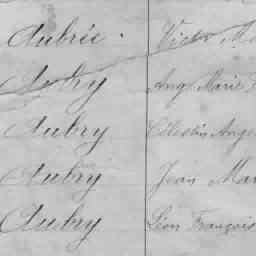 Aubrée. Victor M
Aubry Ang Marie F
Aubry Célestin Ange
Aubry Jean Mar
Aubry Léon François